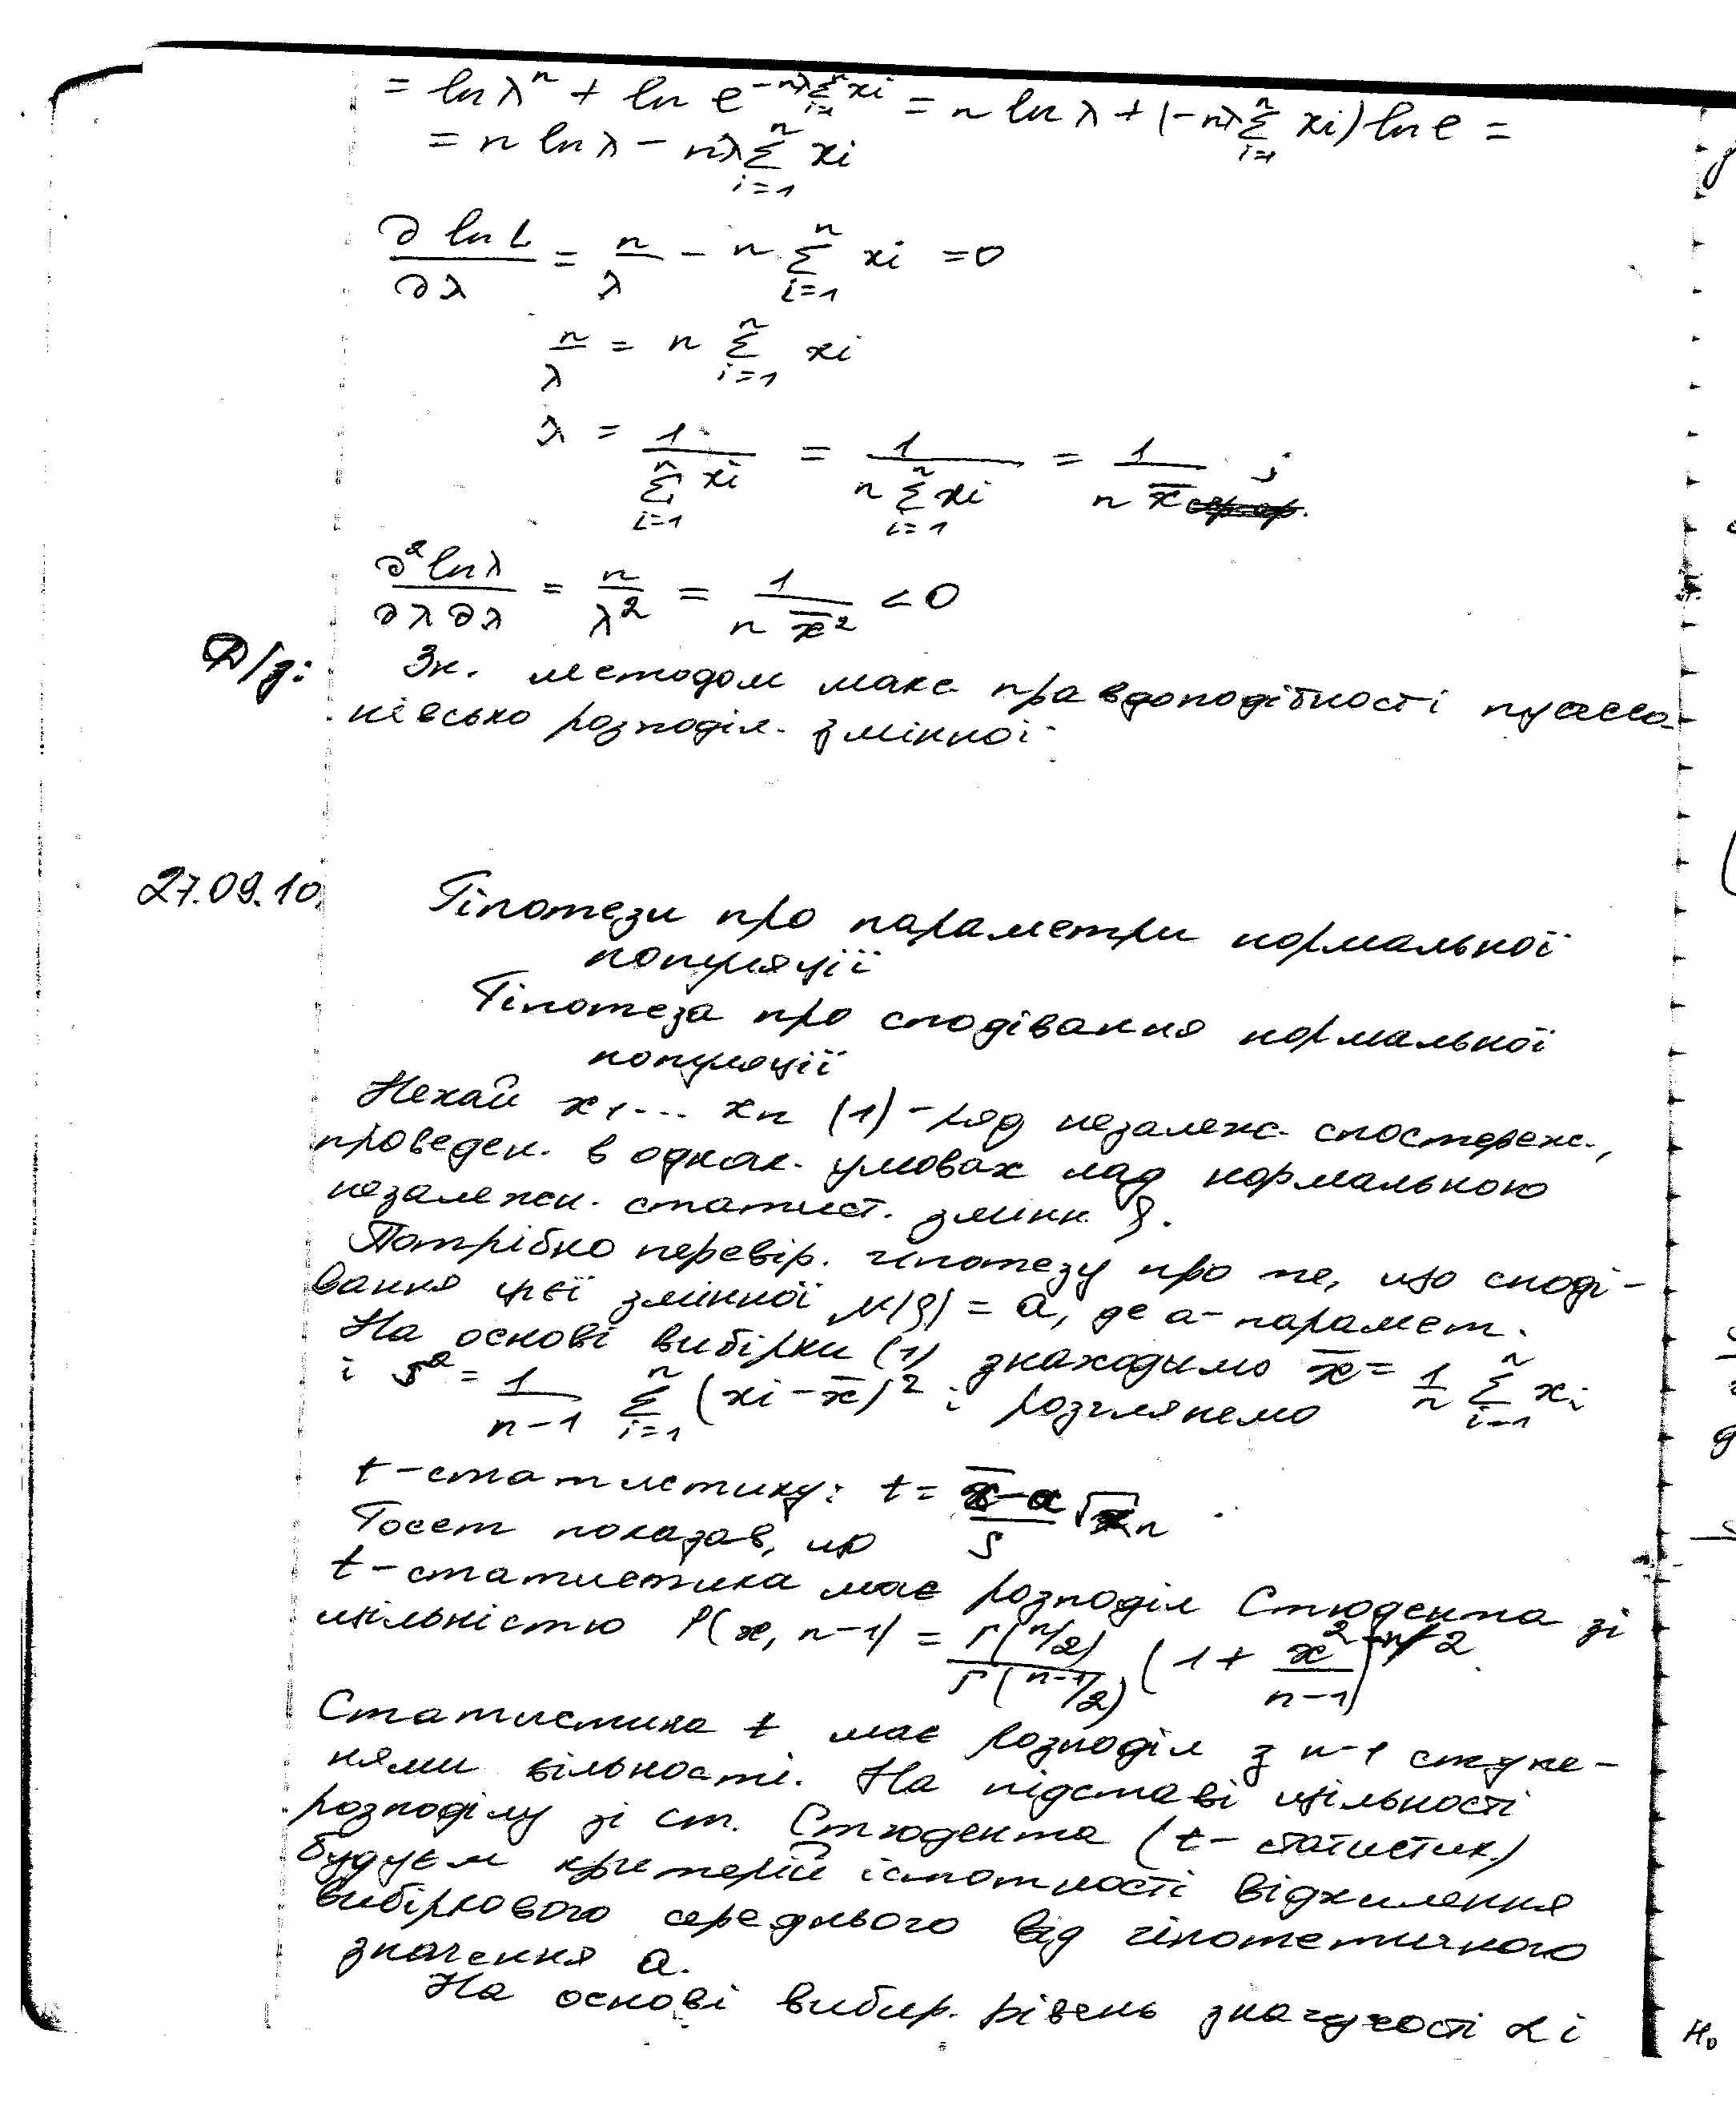 = ln λⁿ + ln e^(-nλ∑_{i=1}^n xi) = n ln λ + (-nλ∑_{i=1}^n xi) ln e =
= n ln λ - nλ∑_{i=1}^n xi
∂ ln L / ∂λ = n/λ - n ∑_{i=1}^n xi = 0
n/λ = n ∑_{i=1}^n xi
λ = 1/(∑_{i=1}^n xi) = 1/(n∑_{i=1}^n xi) = 1/(n x̄) ;
∂² ln λ / ∂λ∂λ = n/λ² = 1/(n x̄²) < 0
Д/з: Зн. методом макс правдоподібності пуассо-
нівсько розподіл. змінної
27.09.10. Гіпотези про параметри нормальної
популяції
Гіпотеза про сподівання нормальної
популяції
Нехай x1... xn (1) - ряд незалеж. спостереж.,
проведен. в однак. умовах над нормальною
незалежн. статист. змінн ξ.
Потрібно перевір. гіпотезу про те, що споді-
вання цієї змінної M(ξ) = a, де a - парамет.
На основі вибірки (1) знаходимо x̄ = 1/n ∑_{i=1}^n xi
і S² = 1/(n-1) ∑_{i=1}^n (xi - x̄)² і розглянемо
t-статистику: t = (x̄ - a)/S √n
Госет показав, що
t-статистика має розподіл Стюдента зі
щільністю P(x, n-1) = Γ(n/2)/Γ(n-1/2) (1 + x²/(n-1))^(-n/2)
Статистика t має розподіл з n-1 ступе-
нями вільності. На підставі щільності
розподілу зі ст. Стюдента (t- статистик.)
будуєм критерій істотності відхилення
вибіркового середнього від гіпотетичного
значення a.
На основі вибир. рівень значущості α і
H₀